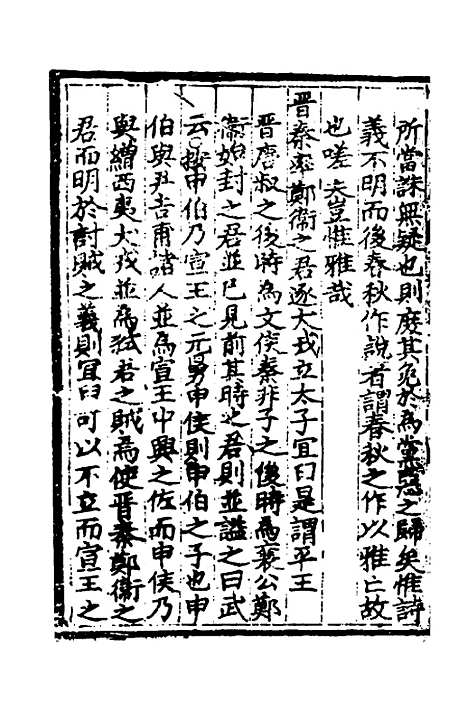 所當誅無疑也則庶其免於為黨惡之歸矣惟詩
義不明而後春秋作說者謂春秋之作以雅亡故
也嗟夫豈惟雅哉
晉秦率鄭衛之君逐犬戎立太子宜臼是謂平王
晉唐叔之後時為文侯秦非子之後時為襄公鄭
衛始封之君並已見前其時之君則並謚之曰武
云按申伯乃宣王之元舅申侯則申伯之子也申
伯與尹吉甫諸人並為宣王中興之佐而申侯乃
與繒西夷犬戎並為弒君之賊為使晉秦鄭衛之
君而明於討賊之義則宜臼可以不立而宣王之